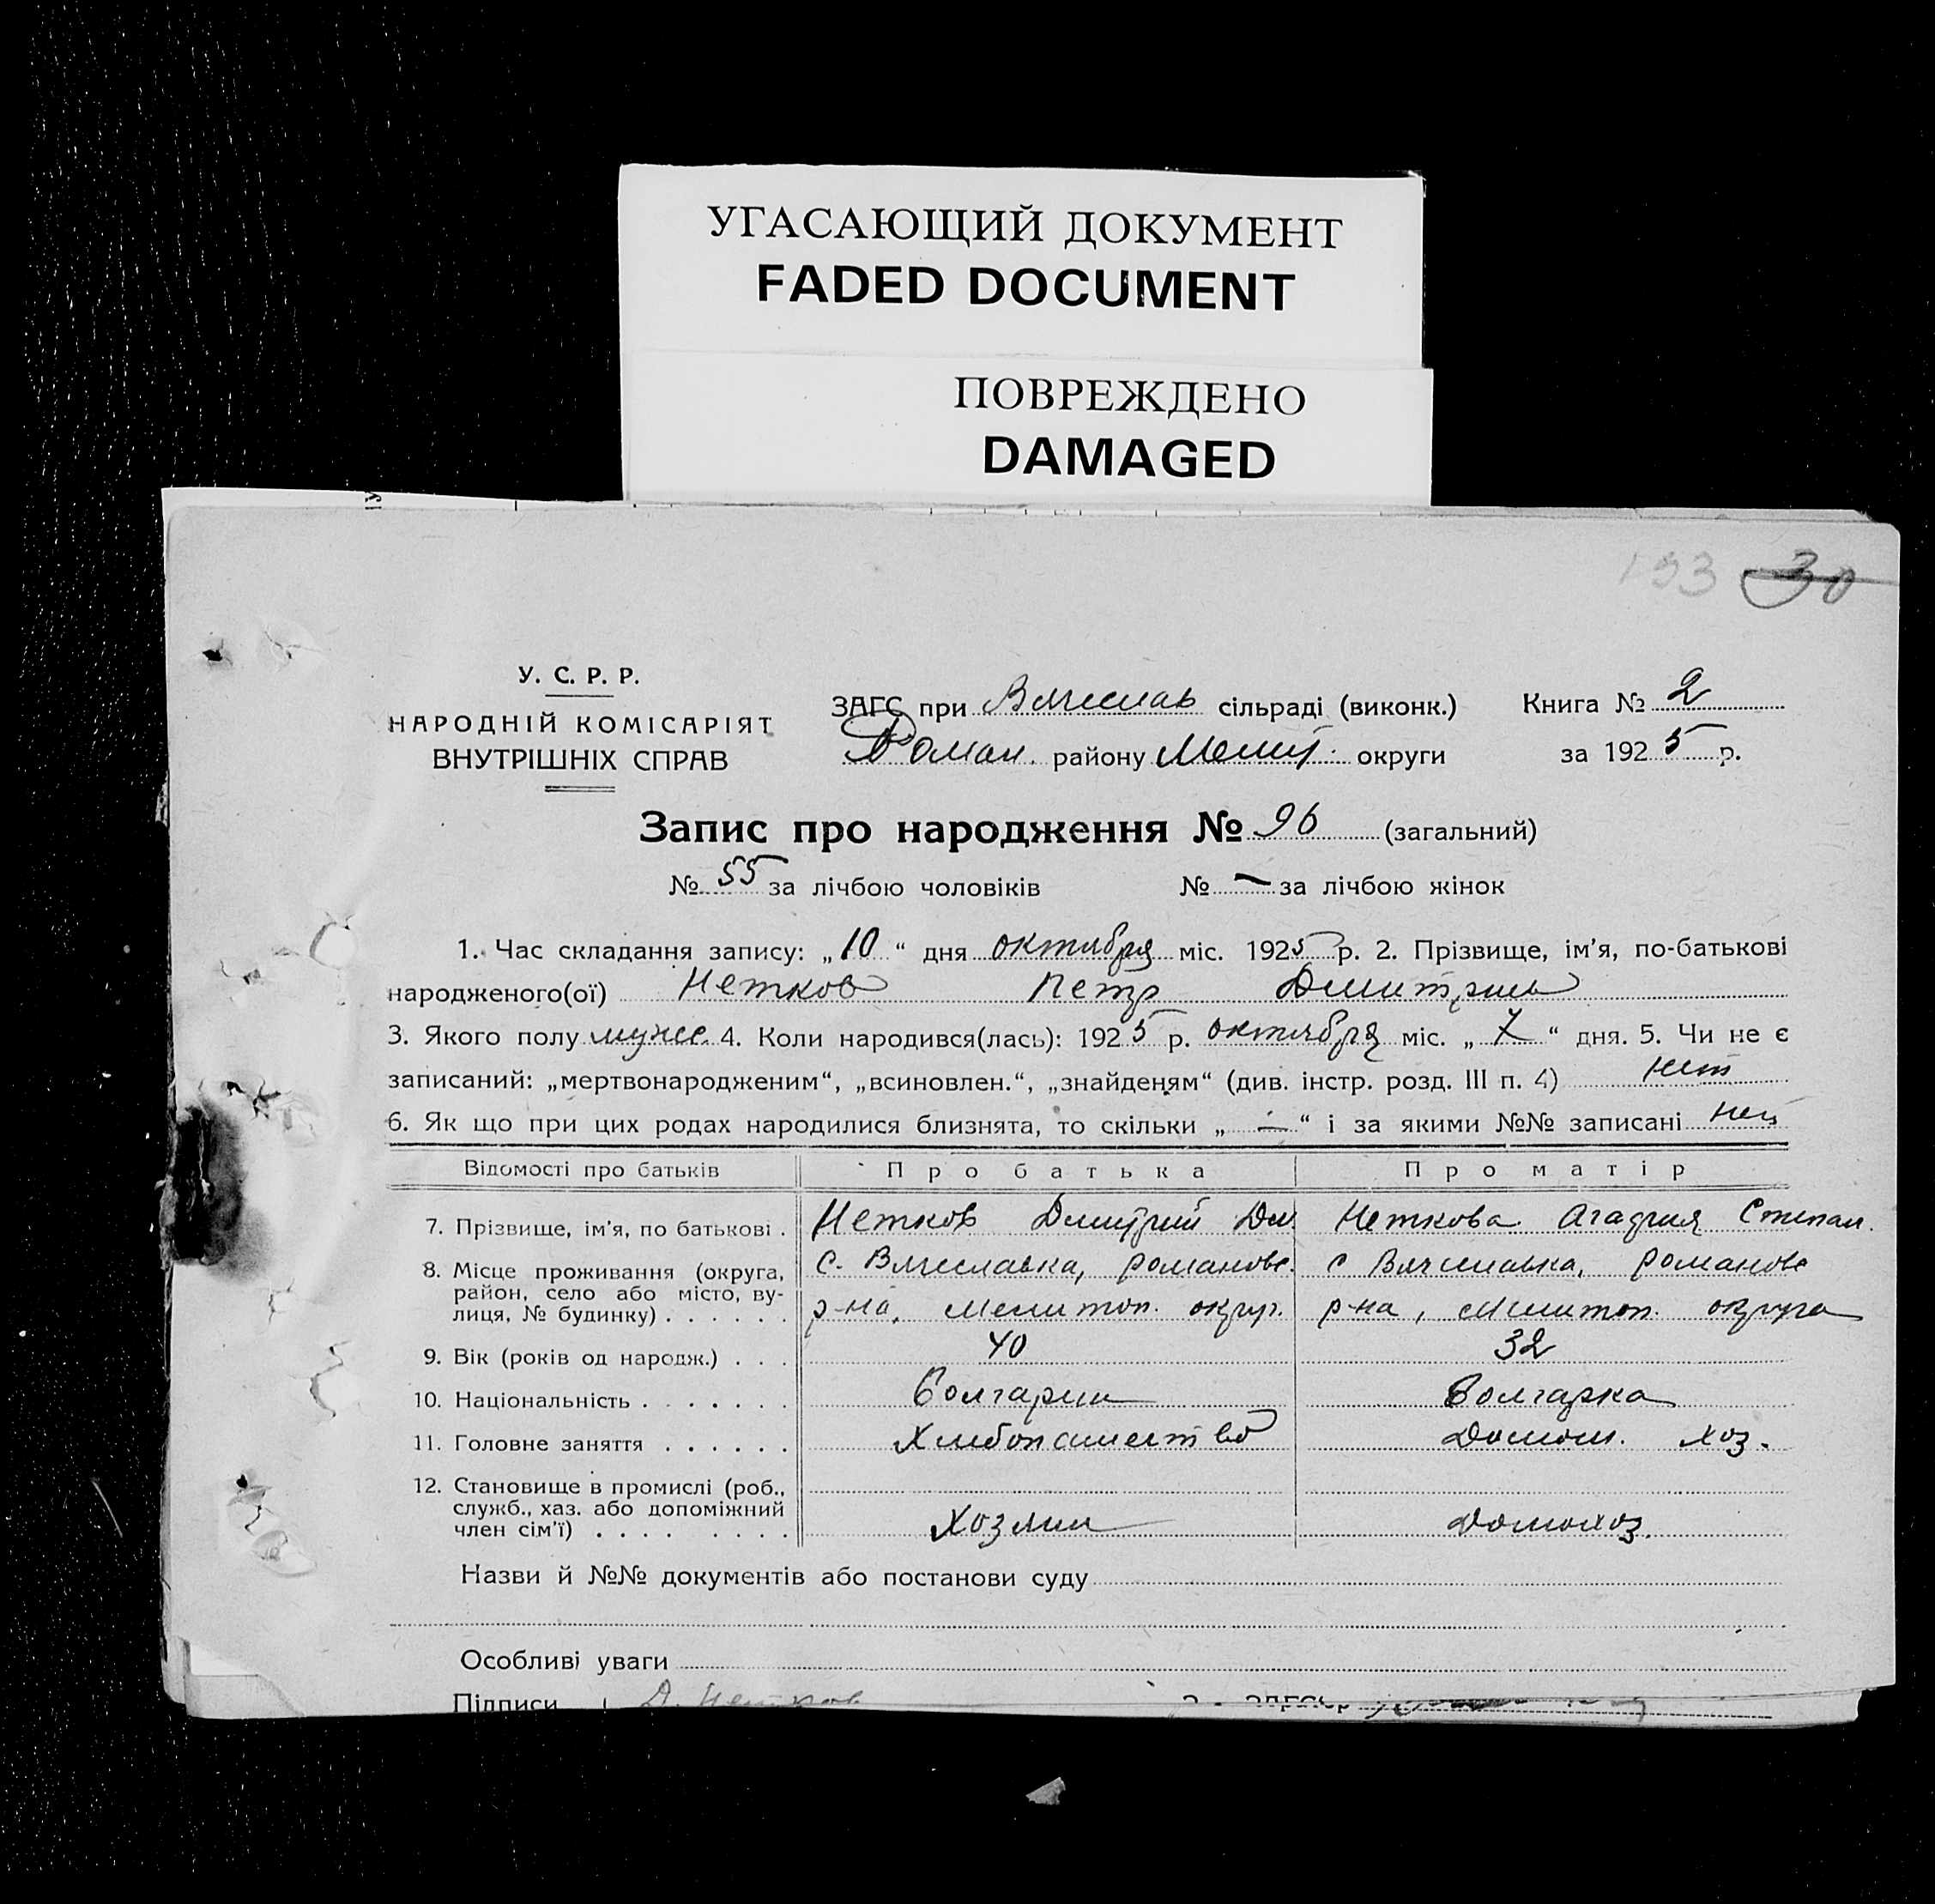 УГАСАЮЩИЙ ДОКУМЕНТ
FADED DOCUMENT
ПОВРЕЖДЕНО
DAMAGED
193 30
У. С. Р. Р.
НАРОДНІЙ КОМІСАРІЯТ
ВНУТРІШНІХ СПРАВ
ЗАГС при Вячеслав сільраді (виконк.) Книга № 2
Роман. району Мелит. округи за 1925 р.
Запис про народження № 96 (загальний)
№ 55 за лічбою чоловіків № — за лічбою жінок
1. Час складання запису: „10“ дня октября міс. 1925 р. 2. Прізвище, ім’я, по-батькові
народженого(ої) Нетков Петр Дмитриев
3. Якого полу мужс. 4. Коли народився(лась): 1925 р. октября міс. „7“ дня. 5. Чи не є
записаний: „мертвонародженим“, „всиновлен.“, „знайденям“ (див. інстр. розд. III п. 4) нет
6. Як що при цих родах народилися близнята, то скільки „—“ і за якими №№ записані нет
Відомості про батьків Про батька Про матір
7. Прізвище, ім’я, по батькові . Нетков Дмитрий Дм Неткова Агафия Степан.
8. Місце проживання (округа, район, село або місто, вулиця, № будинку) . . . . . . с. Вячеславка, Романовс. с Вячеславка, Романовс
р-на, Мелитоп. округ. р-на, Мелитоп. округа
9. Вік (років од народж.) . . . 40 32
10. Національність . . . . . . . Болгарин Болгарка
11. Головне заняття . . . . . . Хлебопашество Домаш. хоз.
12. Становище в промислі (роб., служб., хаз. або допоміжний член сім’ї) . . . . . . . . Хозяин Домохоз.
Назви й №№ документів або постанови суду
Особливі уваги
Підписи Д. Нетков